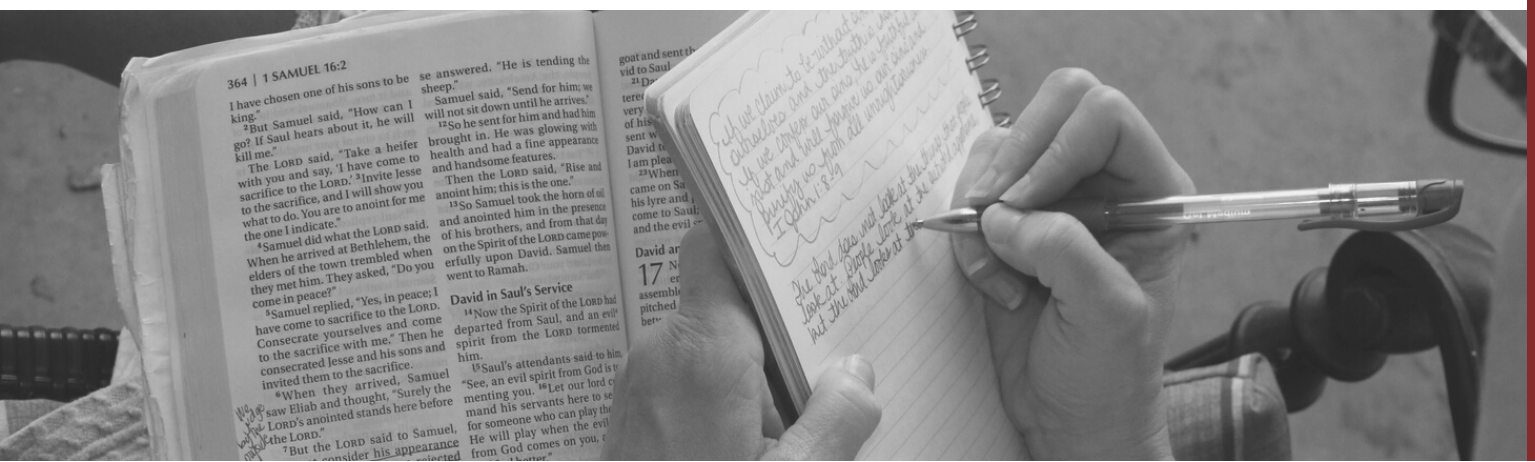 364 | 1 SAMUEL 16:2
I have chosen one of his sons to be
king."
2But Samuel said, "How can I
go? If Saul hears about it, he will
kill me."
The LORD said, "Take a heifer
with you and say, 'I have come to
sacrifice to the LORD.' 3Invite Jesse
to the sacrifice, and I will show you
what to do. You are to anoint for me
the one I indicate."
4Samuel did what the LORD said.
When he arrived at Bethlehem, the
elders of the town trembled when
they met him. They asked, "Do you
come in peace?"
5Samuel replied, "Yes, in peace; I
have come to sacrifice to the LORD.
Consecrate yourselves and come
to the sacrifice with me." Then he
consecrated Jesse and his sons and
invited them to the sacrifice.
6When they arrived, Samuel
saw Eliab and thought, "Surely the
LORD's anointed stands here before
the LORD."
7But the LORD said to Samuel,
consider his appearance
se answered. "He is tending the
sheep."
Samuel said, "Send for him; we
will not sit down until he arrives."
12So he sent for him and had him
brought in. He was glowing with
health and had a fine appearance
and handsome features.
Then the LORD said, "Rise and
anoint him; this is the one."
13So Samuel took the horn of oil
and anointed him in the presence
of his brothers, and from that day
on the Spirit of the LORD came pow-
erfully upon David. Samuel then
went to Ramah.
David in Saul's Service
14Now the Spirit of the LORD had
departed from Saul, and an evil
spirit from the LORD tormented
him.
15Saul's attendants said to him,
"See, an evil spirit from God is
menting you. 16Let our lord
mand his servants here to
for someone who can play the
He will play when the evil
from God comes on you,
better."
goat and sent
vid to Saul
21
very
of his
sent
David
I am
23When
came on
his lyre and
come to Saul;
and the evil
David
17
pitched
If we claim to be without
ourselves and the truth is
If we confess our sins, he is faithful
just and will forgive us our sins and
purify us from all unrighteousness.
I John 1:8,9
The Lord does not look at the things that people
look at. People look at the outward appearance
but the Lord looks at the